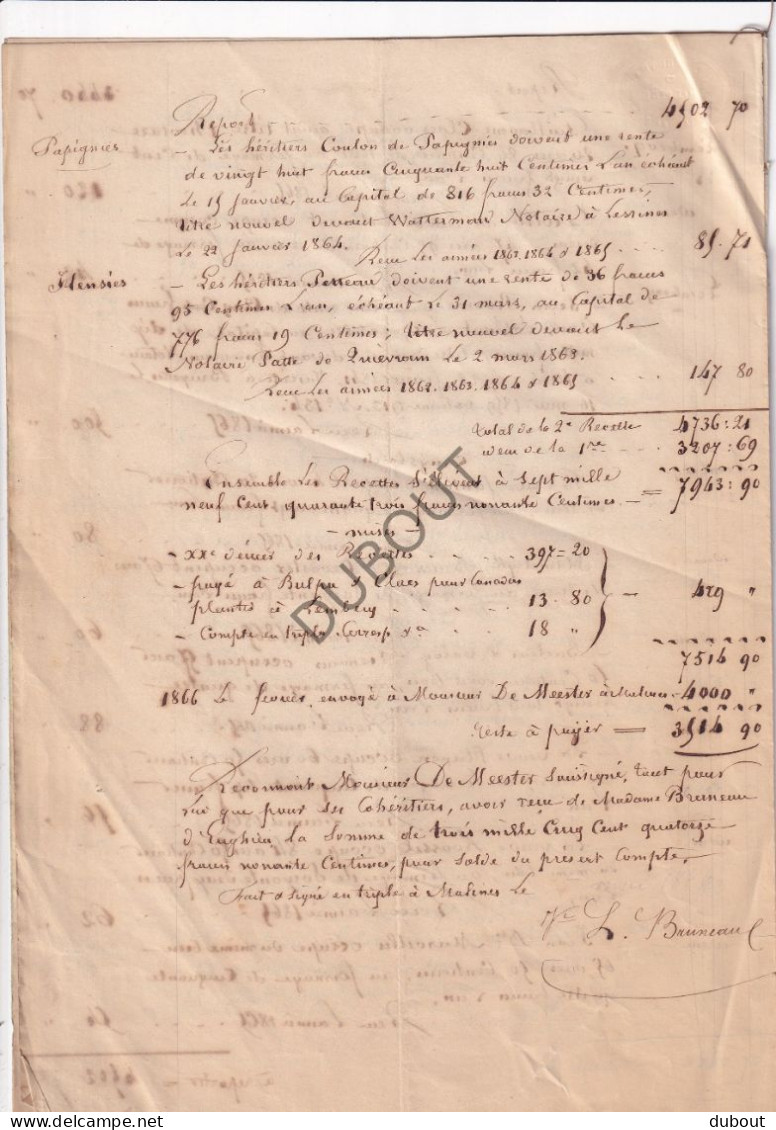 Report - - - - - 4502 70
Papignies
- Les héritiers Coulon de Papignies doivent une rente
de vingt huit francs Cinquante huit Centimes L'an échéant
Le 15 Janvier, au Capital de 816 francs 32 Centimes,
titre nouvel devant Watterman Notaire à Lessines
Le 22 Janvier 1864.
Recu Les années 1863. 1864 & 1865 - - - - 85. 71
Hensies
- Les héritiers Perreau doivent une rente de 36 francs
95 Centimes L'an, échéant Le 31 mars, au Capital de
776 francs 19 Centimes; titre nouvel devant Le
Notaire Patte de Quievrain Le 2 mars 1863.
Recu Les années 1862. 1863. 1864 & 1865 - - - - 147 80
total de la 2e Recette 4736:21
de la 1re - - - 3207:69
Ensemble Les Recettes S'élevent à Sept mille
neuf Cent quarante trois francs nonante Centimes - = 7943:90
- mises -
- XXe denier des Recettes - - - 397=20
- payé à Bulpa & Claes pour Canadas
plantés à Lembecq - - - 13-80 - 429 "
- Compte en triple, Corresp &a 18 "
7514 90
1866 Le fevrier, envoyé à Monsieur De Meester à Malines - 4000 "
reste à payer = 3514 90
Reconnoit Monsieur De Meester Soussigné, tant pour
lui que pour Ses Cohéritiers, avoir recu de Madame Bruneau
d'Enghien La Somme de trois mille Cinq Cent quatorze
francs nonante Centimes, pour Solde du présent Compte,
Fait & Signé en triple à Malines Le
Ve L. Bruneau
DUBOUT
delcampe.net
dubout